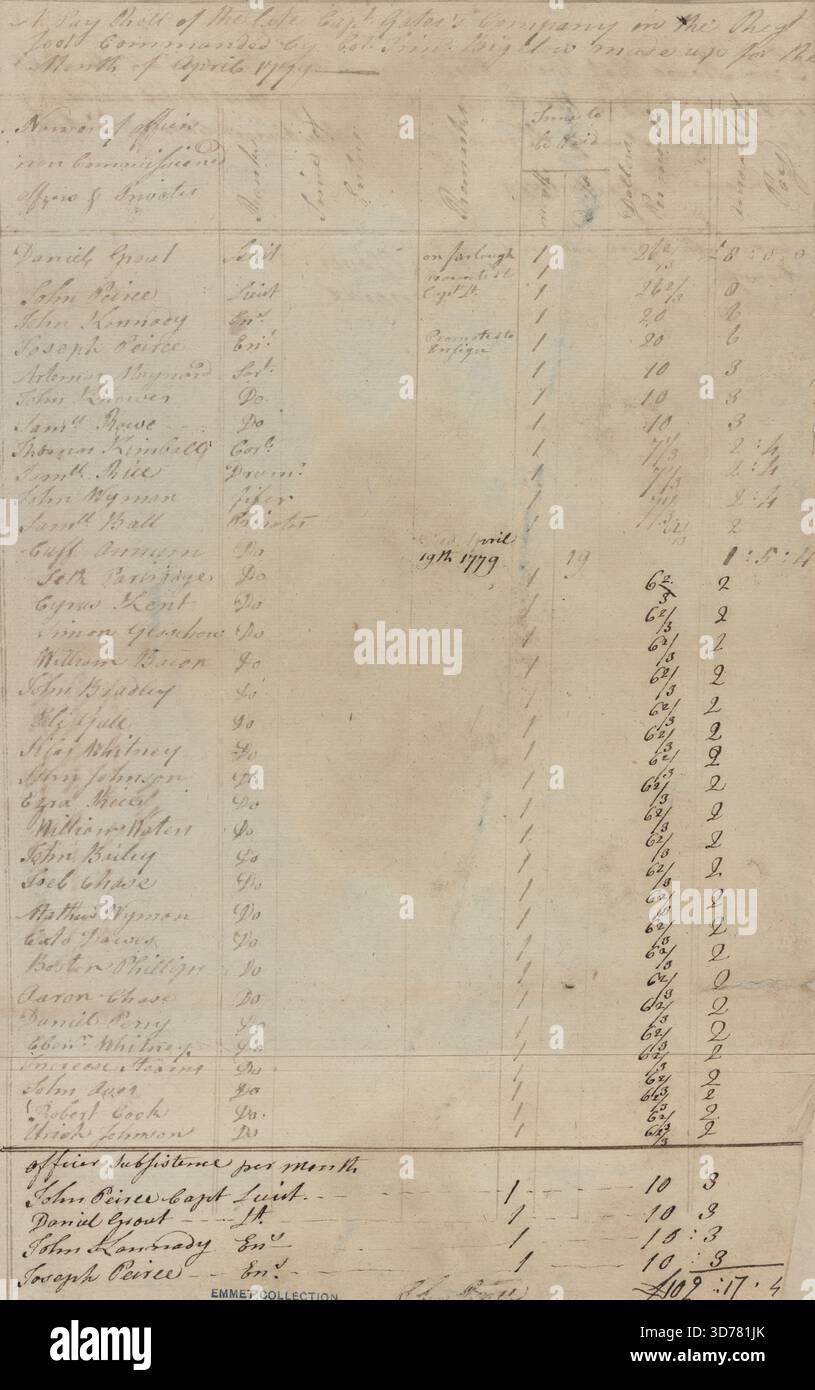 A Pay Roll of the late Capt. Gates's Company in the Regt
foot Commanded by Col. Timo. Bigelow made up for the
Month of April 1779
Names of officers
non Commissioned
officers & Privates
Ranks
Time of
Remarks
Time to
be Paid
Months
Days
Dollars
Pay
Daniel Grout Lieut on furlough 1 26 2/3 £8:0:0
promoted 1
John Peirce Lieut Capt Lt. 1 26 2/3 8
John Kennady Ens 1 20 6
Joseph Peirce Ens Promoted to Ensign 1 20 6
Artemas Maynard Sert. 1 10 3
John Knower Do 1 10 3
Saml. Rowe Do 1 10 3
Thomas Kimball Corl. 1 7 1/3 2:4
Samll. Rice Drumr. 1 7 1/3 2:4
John Wyman fifer 1 7 1/3 2:4
Samll. Ball Privates 1 6 2/3 2
Cuff Do April 19th 1779 19 1:5:4
Seth Do 1 6 2/3 2
Cyrus Kent Do 1 6 2/3 2
Simon Do 1 6 2/3 2
William Bacon Do 1 6 2/3 2
John Bradley Do 1 6 2/3 2
Eli Gale Do 1 6 2/3 2
Silas Whitney Do 1 6 2/3 2
Johnson Do 1 6 2/3 2
Ezra Do 1 6 2/3 2
William Do 1 6 2/3 2
John Bailey Do 1 6 2/3 2
Joel Chase Do 1 6 2/3 2
Mathew Wyman Do 1 6 2/3 2
Cato Do 1 6 2/3 2
Boston Phillips Do 1 6 2/3 2
Aaron Chase Do 1 6 2/3 2
Daniel Perry Do 1 6 2/3 2
Ebenr. Whitney Do 1 6 2/3 2
Increase Stearns Do 1 6 2/3 2
John Do 1 6 2/3 2
Robert Cook Do. 1 6 2/3 2
Uriah Johnson Do 1 6 2/3 2
officer Subsistence per month
John Peirce Capt Lieut. 1 10 3
Daniel Grout Lt. 1 10 3
John Kennady Ens 1 10:3
Joseph Peirce Ens. 1 10:3
£109:17:4
EMMET COLLECTION